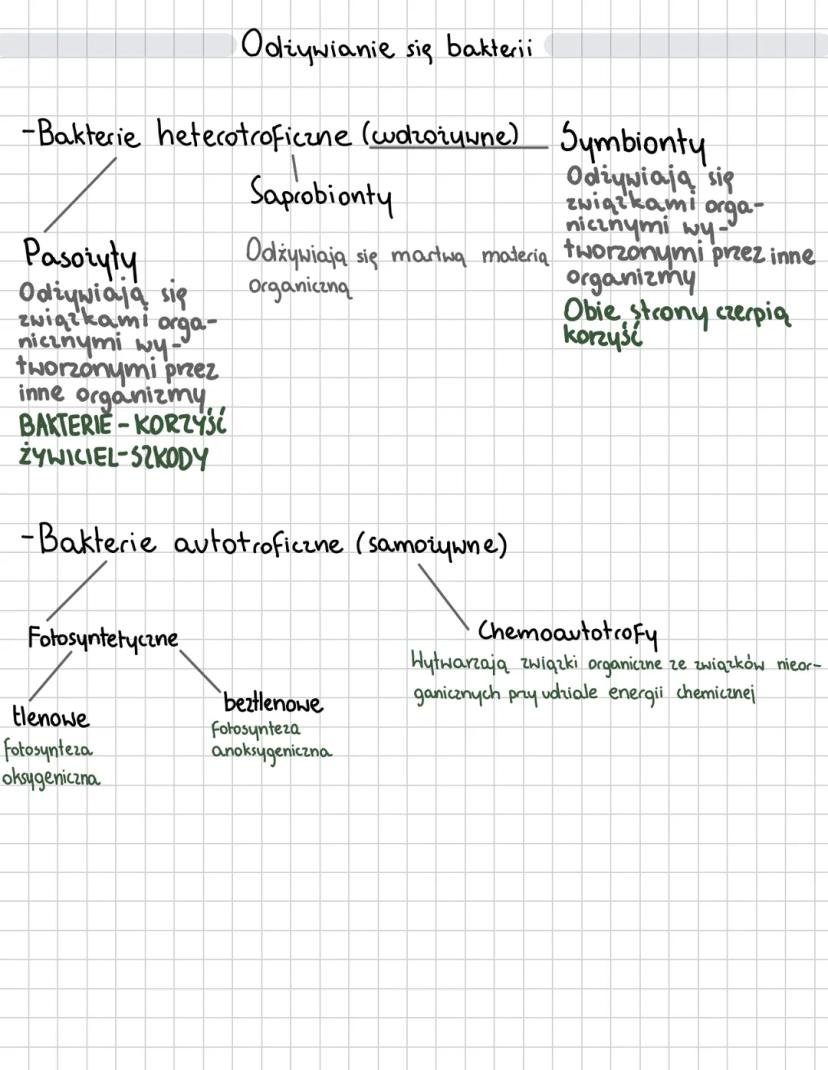 Odżywianie się bakterii
-Bakterie heterotroficzne (cudzożywne)
Symbionty
Odżywiają się
związkami orga-
nicznymi wy-
tworzonymi przez inne
organizmy
Obie strony czerpią
korzyść
Saprobionty
Odżywiają się martwą materią
organiczną
Pasożyty
Odżywiają się
związkami orga-
nicznymi wy-
tworzonymi przez
inne organizmy
BAKTERIE - KORZYŚĆ
ŻYWICIEL-SZKODY
-Bakterie autotroficzne (samożywne)
Fotosyntetyczne
tlenowe
fotosynteza
oksygeniczna
beztlenowe
fotosynteza
anoksygeniczna
Chemoautotrofy
Wytwarzają związki organiczne ze związków nieor-
ganicznych przy udziale energii chemicznej